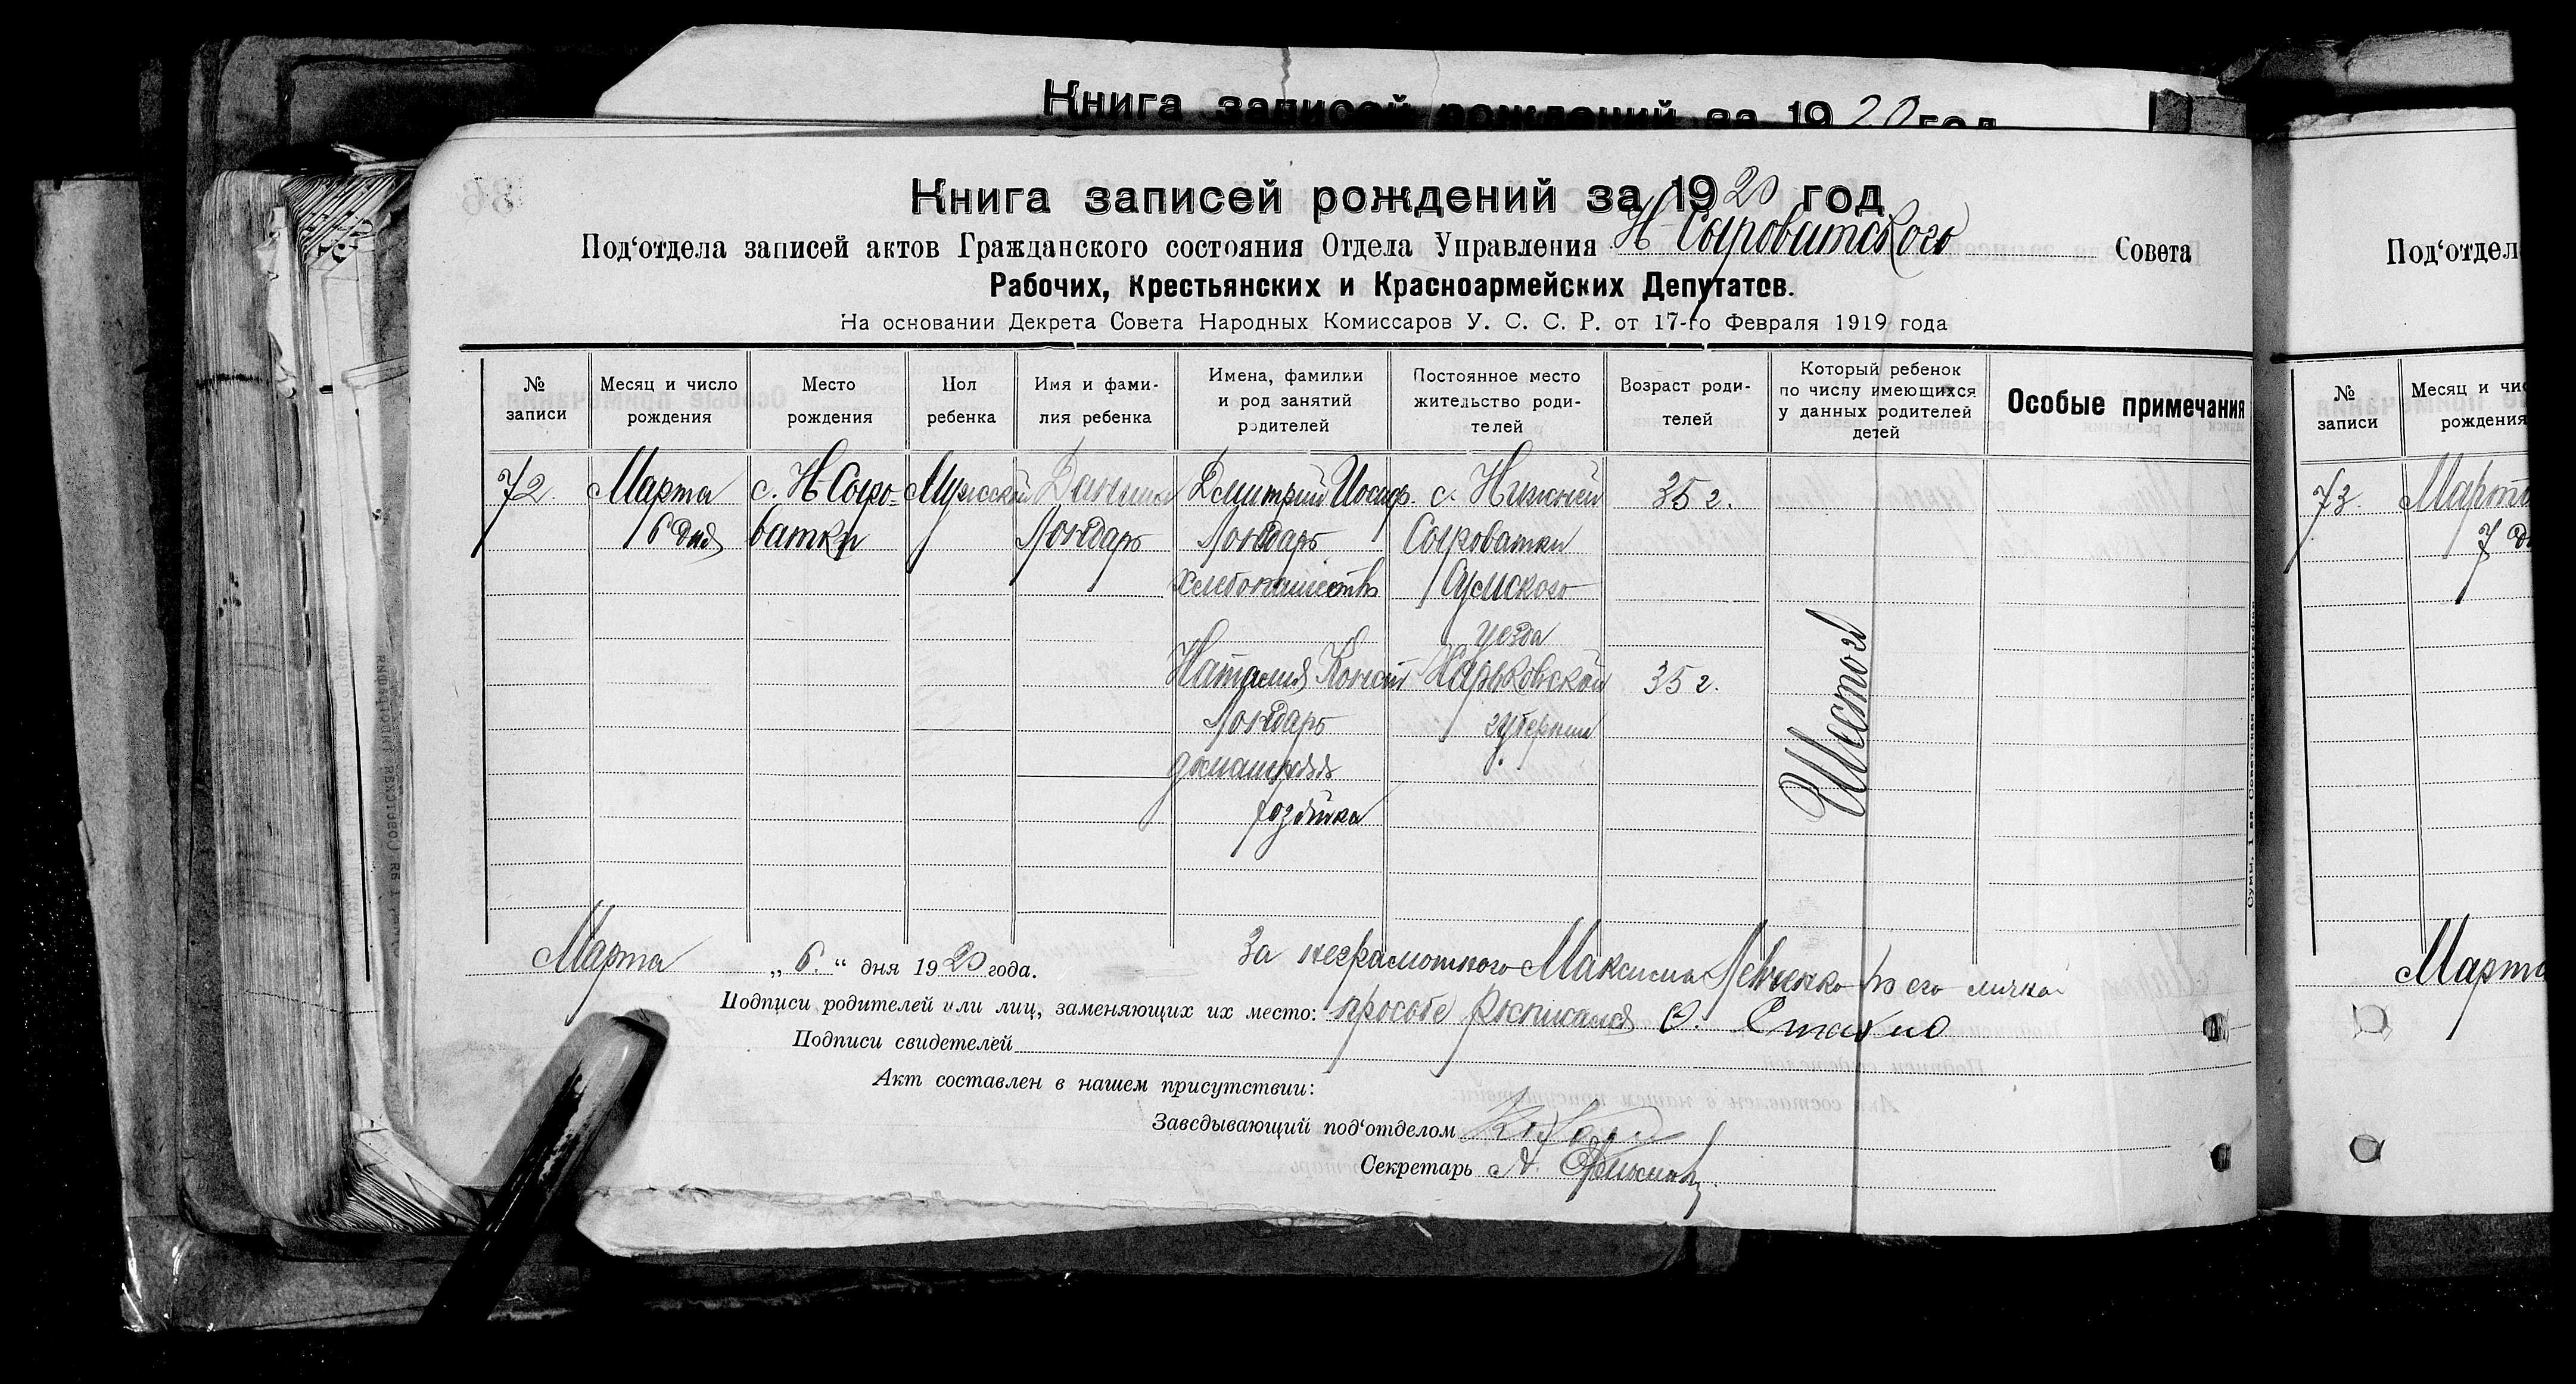 Книга записей рождений за 1920 год
Книга записей рождений за 1920 год
Под‘отдела записей актов Гражданского состояния Отдела Управления Н-Сыроватского Совета
Рабочих, Крестьянских и Красноармейских Депутатов.
На основании Декрета Совета Народных Комиссаров У. С. С. Р. от 17-го Февраля 1919 года
№ записи
Месяц и число рождения
Место рождения
Пол ребенка
Имя и фами-
лия ребенка
Имена, фамилии
и род занятий
родителей
Постоянное место
жительство роди-
телей
Возраст роди-
телей
Который ребенок
по числу имеющихся
у данных родителей
детей
Особые примечания
72.
Марта
6 дня
с. Н-Сыро-
ватки
Мужской
Лондарь
Дмитрий Иосиф.
Лондарь
хлебопашество
Наталия Конст
Лондарь
домашняя
хозяйка
с. Нижней
Сыроватки
Сумского
уезда
Харьковской
губернии
35 г.
35 г.
Шестой
Марта „ 6. “ дня 1920 года.
За неграмотного Максима Левченко по его лично
Подписи родителей или лиц, заменяющих их место: просьбе росписался
Подписи свидетелей
Акт составлен в нашем присутствии:
Заведывающий под‘отделом
Секретарь А.
Сумы. 1-ая Советская типография
Под‘отдел
№ записи
Месяц и чис
рождения
73.
Марта
7 дн
Марта